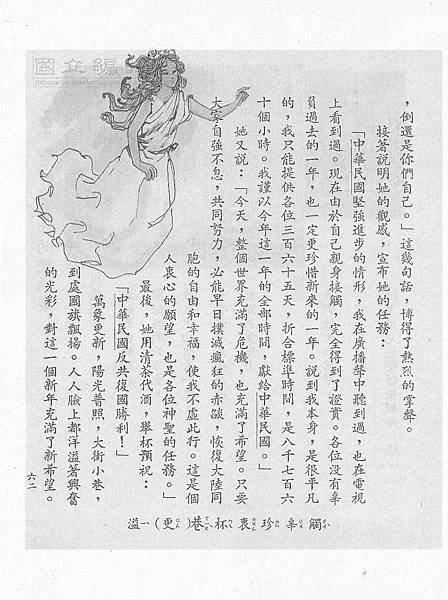 ，倒還是你們自己。」這幾句話，博得了熱烈的掌聲。
接著說明她的觀感，宣布她的任務：
「中華民國堅強進步的情形，我在廣播聲中聽到過，也在電視
上看到過。現在由於自己親身接觸，完全得到了證實。各位沒有辜
負過去的一年，也一定更珍惜新來的一年。說到我本身，是很平凡
的，我只能提供各位三百六十五天，折合標準時間，是八千七百六
十個小時。我謹以今年這一年的全部時間，獻給中華民國。」
她又說：「今天，整個世界充滿了危機，也充滿了希望。只要
大家自強不息，共同努力，必能早日撲滅瘋狂的赤燄，恢復大陸同
胞的自由和幸福，使我不虛此行。這是個
人衷心的願望，也是各位神聖的任務。」
最後，她用清茶代酒，舉杯預祝：
「中華民國反共復國勝利！」
萬象更新，陽光普照，大街小巷，
到處國旗飄揚。人人臉上都洋溢著興奮
的光彩，對這一個新年充滿了新希望。
六二
觸辜珍衷杯巷(更)溢
國立編